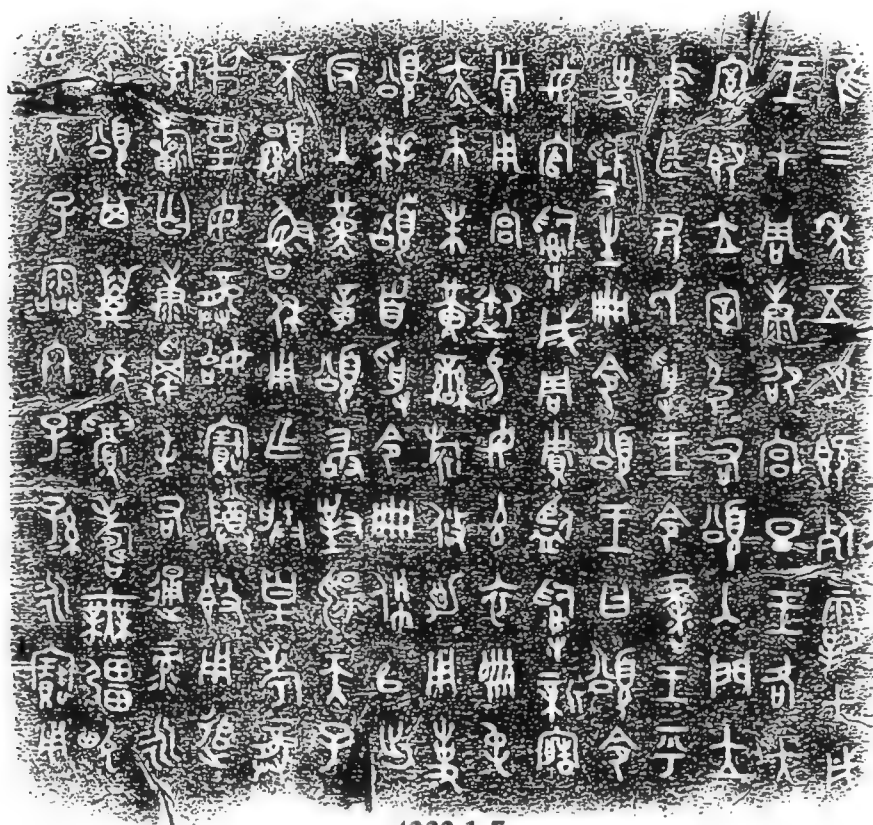 隹三年五月既死霸甲戌
王才周康卲宮旦王各大
室即立宰引右頌入門立
中廷尹氏受王令書王乎
史虢生冊令頌王曰頌令
女官𤔲成周貯監𤔲新寤
貯用宮御易女玄衣黹屯
赤巿朱黃䜌旂攸勒用事
頌拜𩒨首受令冊佩㠯出
反入堇章頌敢對揚天子
不顯魯休用乍朕皇考龏
弔皇母龏始寶尊𣪘用追
孝𣄨匄康𩁹屯右通彔永
令頌其萬年眉壽無疆畯
臣天子霝冬子=孫=永寶用